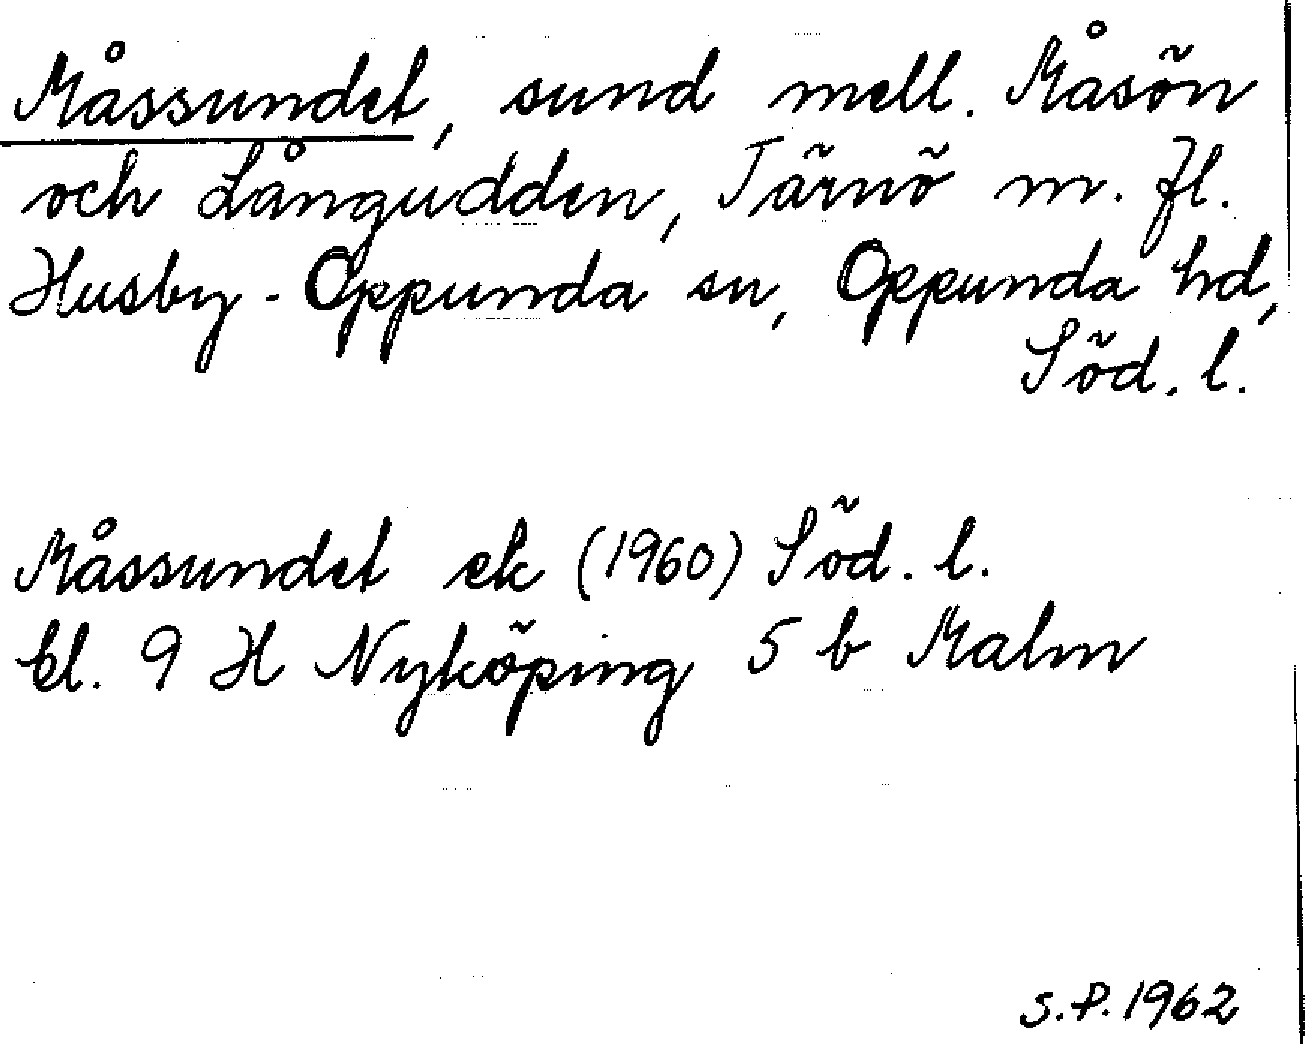 Måssundet, sund mell. Måsön
och Långudden, Tärnö m. fl.
Husby-Oppunda sn, Oppunda hd,
Söd. l.
Måssundet ek (1960) Söd. l.
bl. 9 H Nyköping 5 b Malm
S.P. 1962